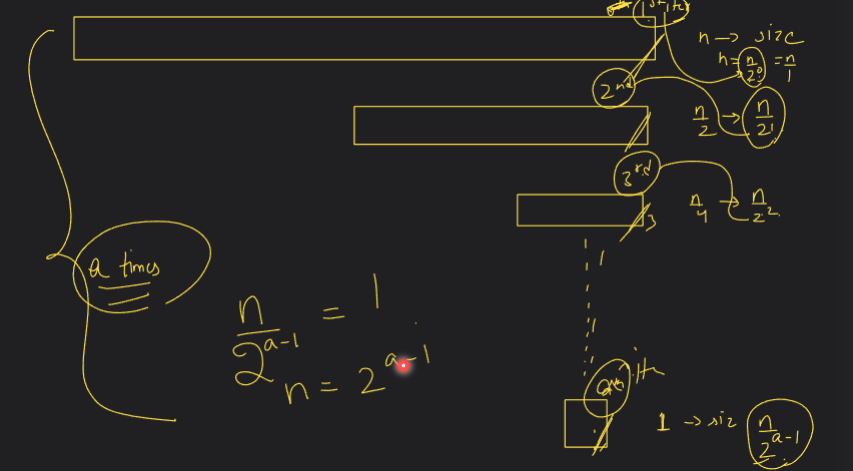 1st iter
n → size
n = n/2⁰ = n/1
2nd
n/2 → n/2¹
3rd
n/4 → n/2²
3
a times
n/2^(a-1) = 1
n = 2^(a-1)
ath itr
1 → siz n/2^(a-1)